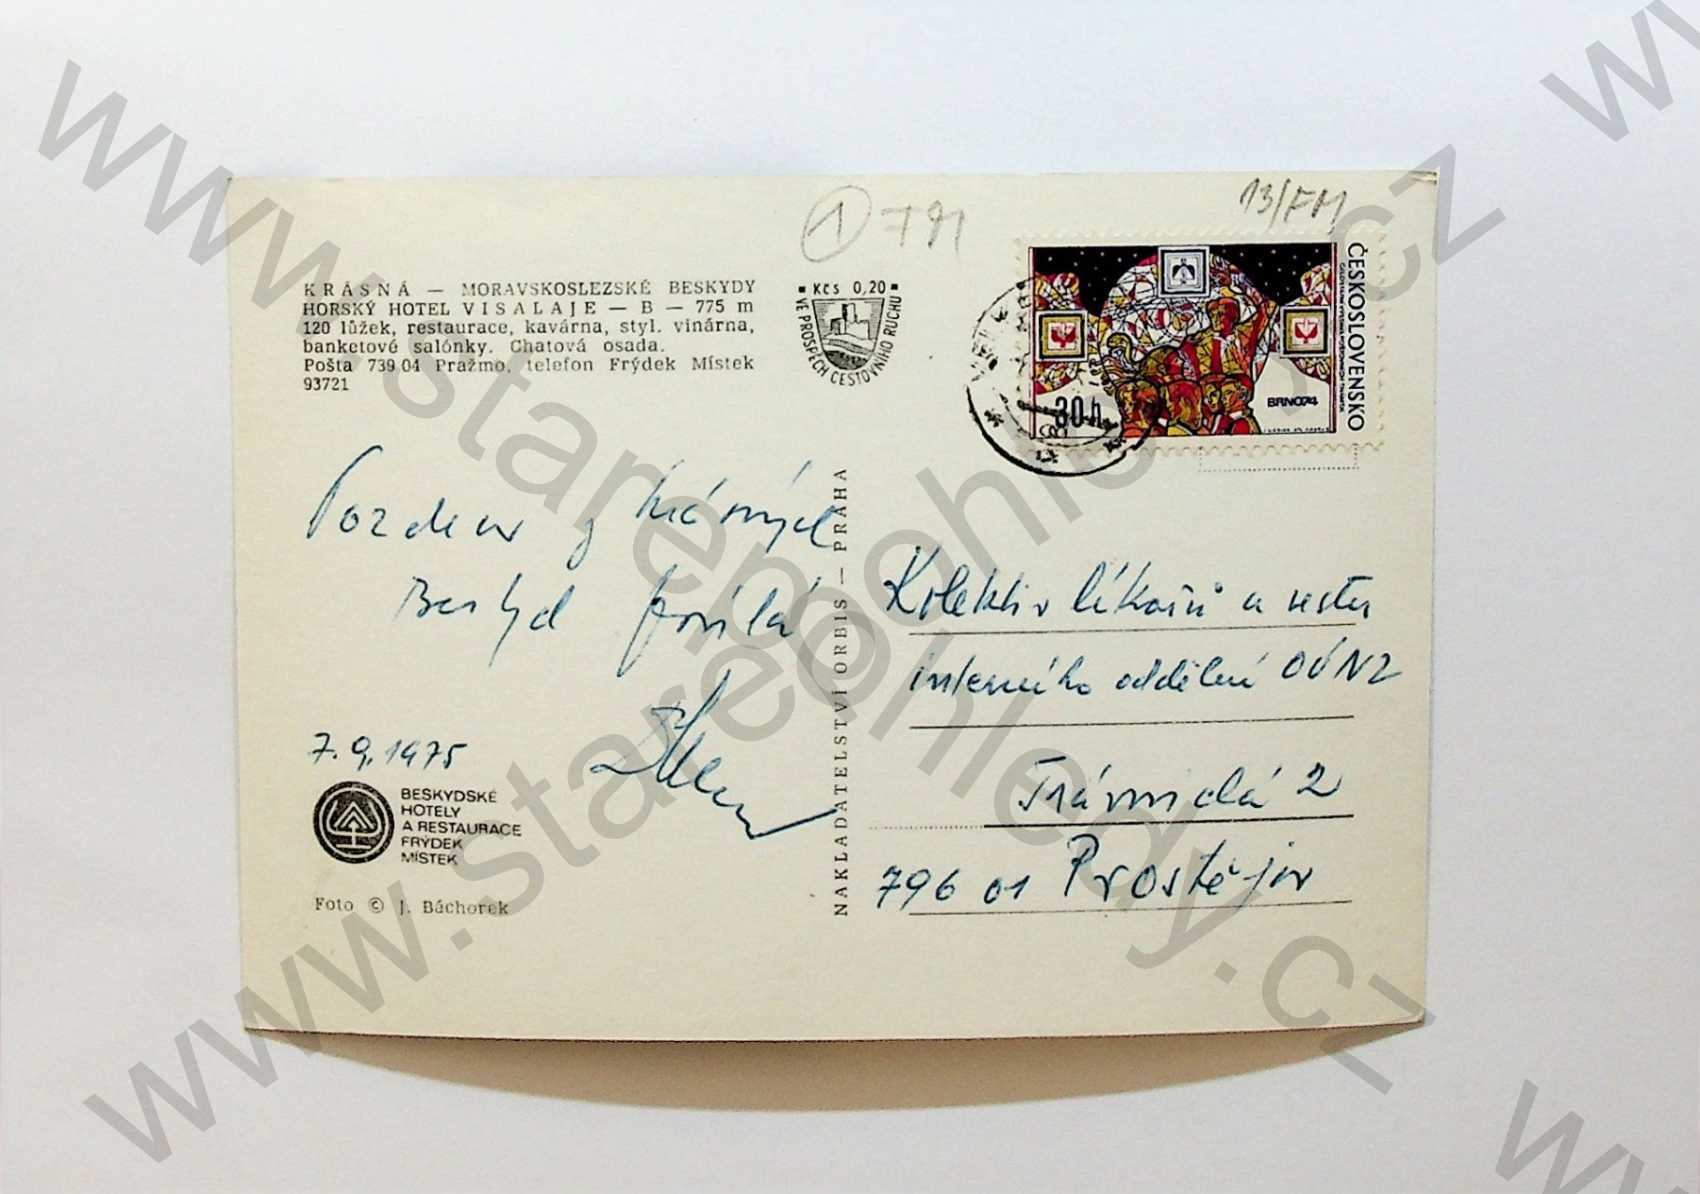 13/FM
1
KRÁSNÁ — MORAVSKOSLEZSKÉ BESKYDY
HORSKÝ HOTEL VISALAJE — B — 775 m
120 lůžek, restaurace, kavárna, styl. vinárna,
banketové salónky. Chatová osada.
Pošta 739 04 Pražmo, telefon Frýdek Místek
93721
Kčs 0,20
VE PROSPĚCH CESTOVNÍHO RUCHU
ČESKOSLOVENSKO
BRNO74
30h
Pozdrav z krásných
Beskyd posílá
7.9.1975
BESKYDSKÉ
HOTELY
A RESTAURACE
FRÝDEK
MÍSTEK
Foto © J. Báchorek
NAKLADATELSTVÍ ORBIS — PRAHA
Kolektiv lékařů a sester
interního oddělení OÚNZ
2
796 01 Prostějov
www.starepohledy.cz
www.starepohledy.cz